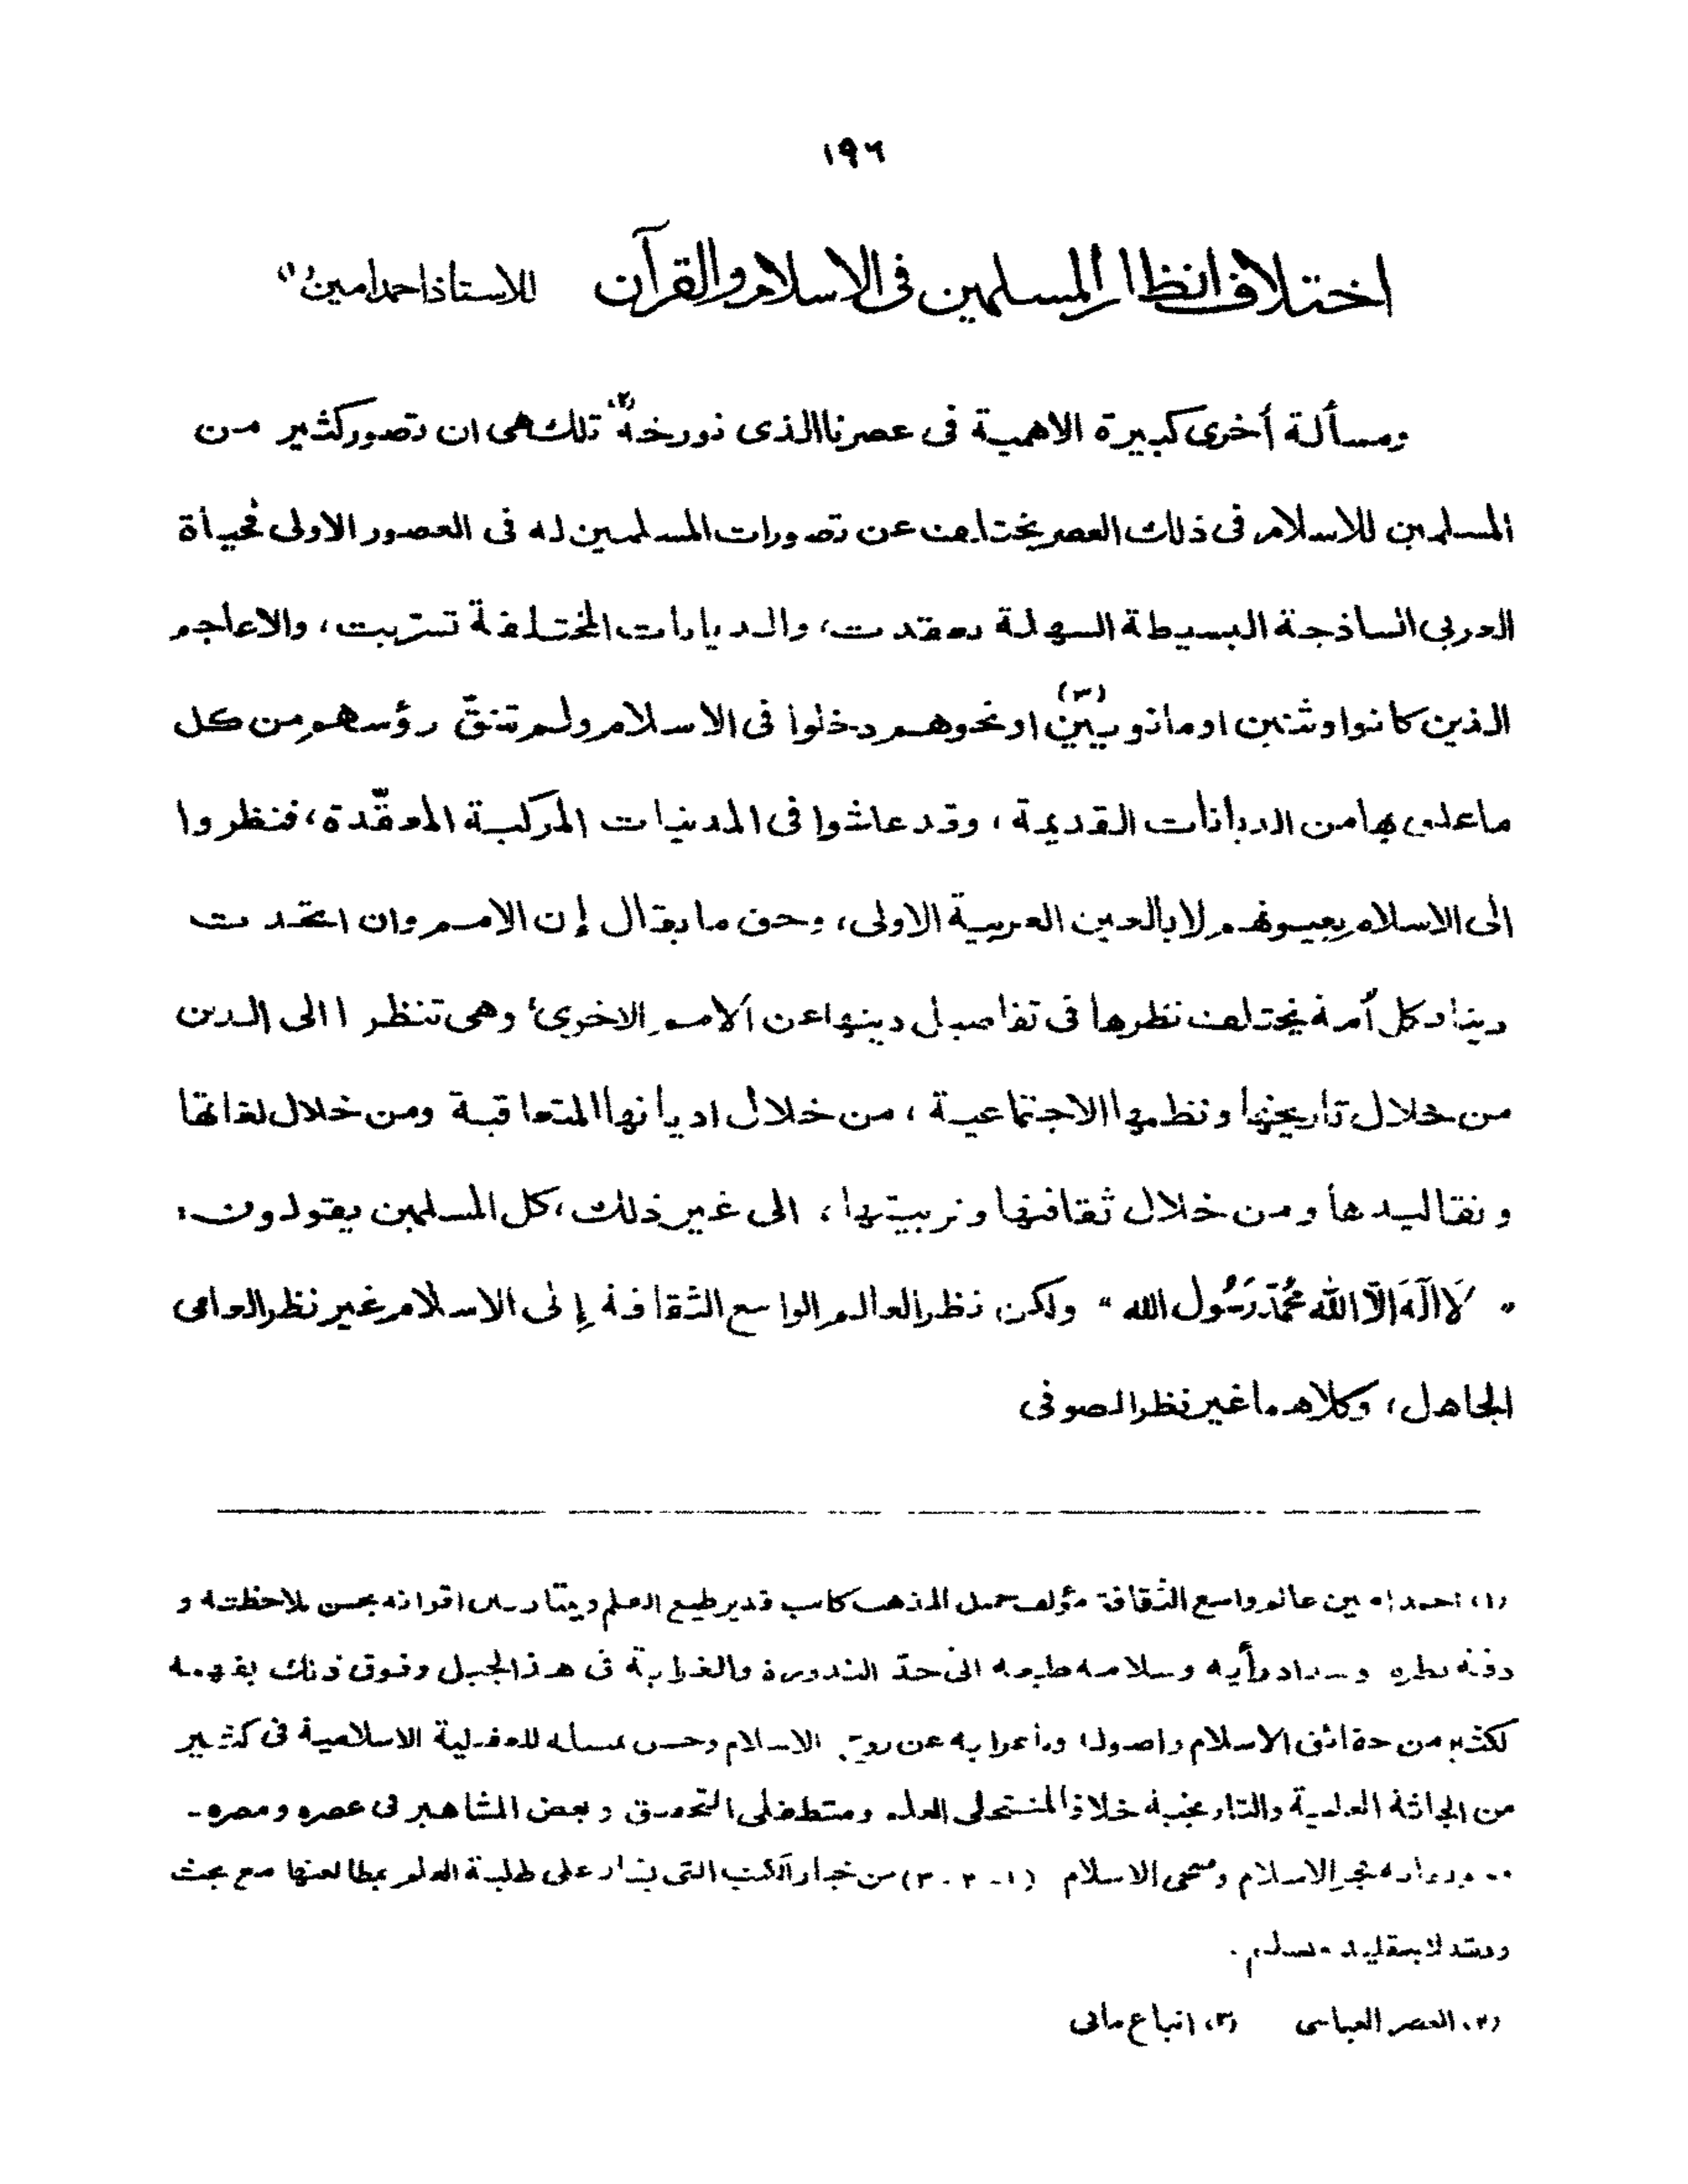 ١٩٦
اختلاف انظار المسلمين فى الاسلام والقرآن للاستاذ احمد امين (١)
ومسألة أخرى كبيرة الاهمية فى عصرنا الذى نورخه (٢) تلك هى ان تصور كثير من
المسلمين للاسلام فى ذلك العصر يختلف عن تصورات المسلمين له فى العصور الاولى فحياة
العربى الساذجة البسيطة السهلة تعقدت، والديانات المختلفة تسربت، والاعاجم
الذين كانوا وثنين او مانويين (٣) او نحوهم دخلوا فى الاسلام ولم تنقّ رؤسهم من كل
ما علق بها من الديانات القديمة، وقد عاشوا فى المدنيات المركبة المعقّدة، فنظروا
الى الاسلام بعيونهم لا بالعين العربية الاولى، وحق ما يقال إن الامم وان اتحدت
دينا فكل أمة يختلف نظرها فى تفاصيل دينها عن الامم الاخرى، وهى تنظر الى الدين
من خلال تاريخها ونظمها الاجتماعية، من خلال اديانها المتعاقبة ومن خلال لغاتها
وتقاليدها ومن خلال ثقافتها وتربيتها، الى غير ذلك، كل المسلمين يقولون:
" لَا اِلٰهَ اِلَّا اللّٰه مُحَمَّد رَسُول الله " ولكن نظر العالم الواسع الثقافة إلى الاسلام غير نظر العامى
الجاهل، وكلاهما غير نظر الصوفى
(١) احمد امين عالم واسع الثقافة مؤلف المذهب كاتب قدير طبع العلم ويمتاز اقرانه بحسن ملاحظته و
دقة نظره وسداد رأيه وسلامة طبعه الى حدّ الندورة والغرابة فى هذا الجيل وفوق ذلك بفهمه
لكثير من حقائق الاسلام واصوله عن روح الاسلام وحسن للعقلية الاسلامية فى كثير
من العلمية والتاريخية خلافا لمنتحلى العلم ومتطفلى التحقيق وبعض المشاهير فى عصره ومصره -
فجر الاسلام وضحى الاسلام (١ - ٢ - ٣) من خيار الكتب التى على طلبة العلم بمطالعتها مع بحث
ونقد لا بتقليد
(٢) العصر العباسى (٣) اتباع مانى